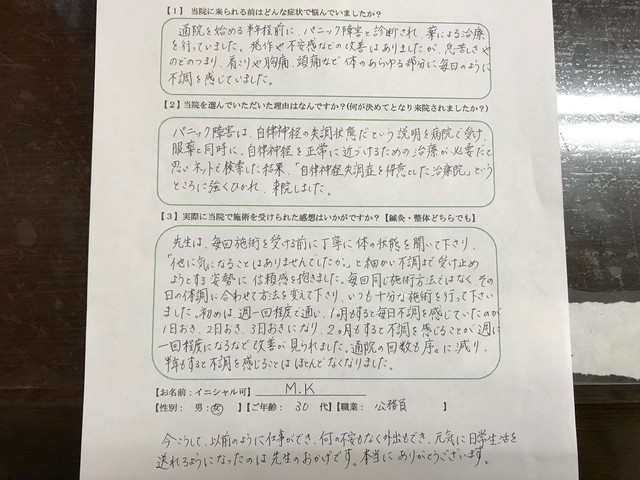 【1】当院に来られる前はどんな症状で悩んでいましたか?
通院を始める半年程前に、パニック障害と診断され、薬による治療
を行っていました。発作や不安感などの改善はありましたが、息苦しさや
のどのつまり、肩こりや胸痛、頭痛など体のあらゆる部分に毎日のように
不調を感じていました。
【2】当院を選んでいただいた理由はなんですか?(何が決めてとなり来院されましたか?)
パニック障害は、自律神経の失調状態だという説明を病院で受け、
服薬と同時に、自律神経を正常に近づけるための治療が必要だと
思いネットで検索した結果、「自律神経失調症を得意とした治療院」という
ところに強くひかれ、来院しました。
【3】実際に当院で施術を受けられた感想はいかがですか?【鍼灸・整体どちらでも】
先生は、毎回施術を受ける前に丁寧に体の状態を聞いて下さり、
「他に気になることはありませんでしたか。」と細かい不調まで受け止め
ようとする姿勢に信頼感を抱きました。毎回同じ施術方法ではなく、その
日の体調に合わせて方法を変えて下さり、いつも十分な施術を行って下さい
ました。初めは、週一回程度と通い、1ヶ月もすると毎日不調を感じていたのが
1日おき、2日おき、3日おきになり、2ヶ月もすると不調を感じることが週に
一回程度になるなど改善が見られました。通院の回数も序々に減り、
半年もすると不調を感じることはほとんどなくなりました。
【お名前:イニシャル可】 M.K
【性別: 男:女 】【ご年齢: 30 代】【職業: 公務員 】
今こうして、以前のように仕事ができ、何の不安もなく外出もでき、元気に日常生活を
送れるようになったのは先生のおかげです。本当にありがとうございます。